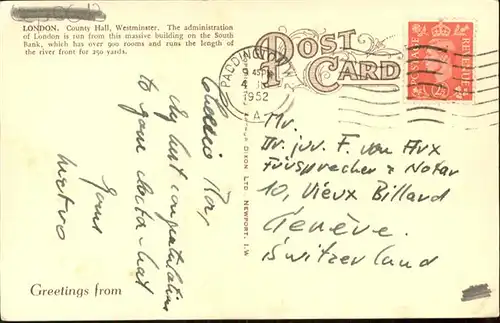 LONDON. County Hall, Westminster. The administration
of London is run from this massive building on the South
Bank, which has over 900 rooms and runs the length of
the river front for 250 yards.
POST
CARD
PADDINGTON W.2
9 45 PM
1952
A
POSTAGE
REVENUE
ARTHUR DIXON LTD NEWPORT, I.W.
My best congratulations
to your
Yours
Mr.
Dr. jur. F. von Arx
Fürsprecher & Notar
10, Vieux Billard
Genève.
Switzerland
Greetings from